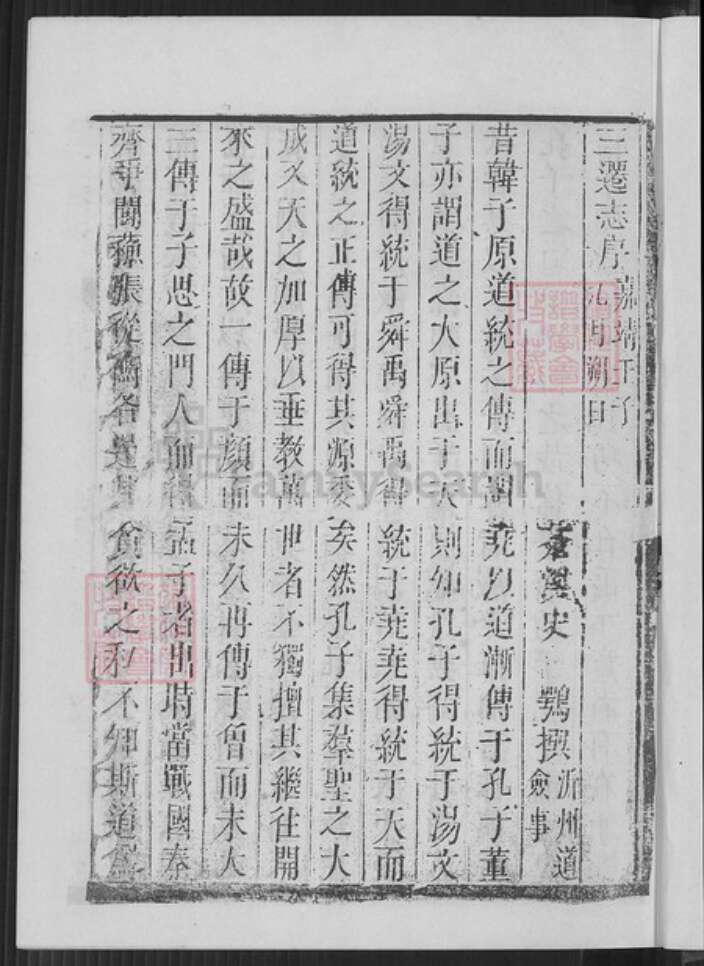 三遷志序 嘉靖壬子九月朔日
史鶚撰 沂州道僉事
昔韓子原道統之傳而謂堯以道漸傳于孔子董
子亦謂道之大原出于天則知孔子得統于湯文
湯文得統于舜禹舜禹得統于堯堯得統于天而
道統之正傳可得其源委矣然孔子集羣聖之大
成又天之加厚以垂教萬世者不獨擅其繼往開
來之盛哉故一傳于顔而未久再傳于曾而未大
三傳于子思之門人而得孟子者出時當戰國秦
齊爭鬪蘇張從衡各逞其貪欲之私不知斯道爲
FamilySearch